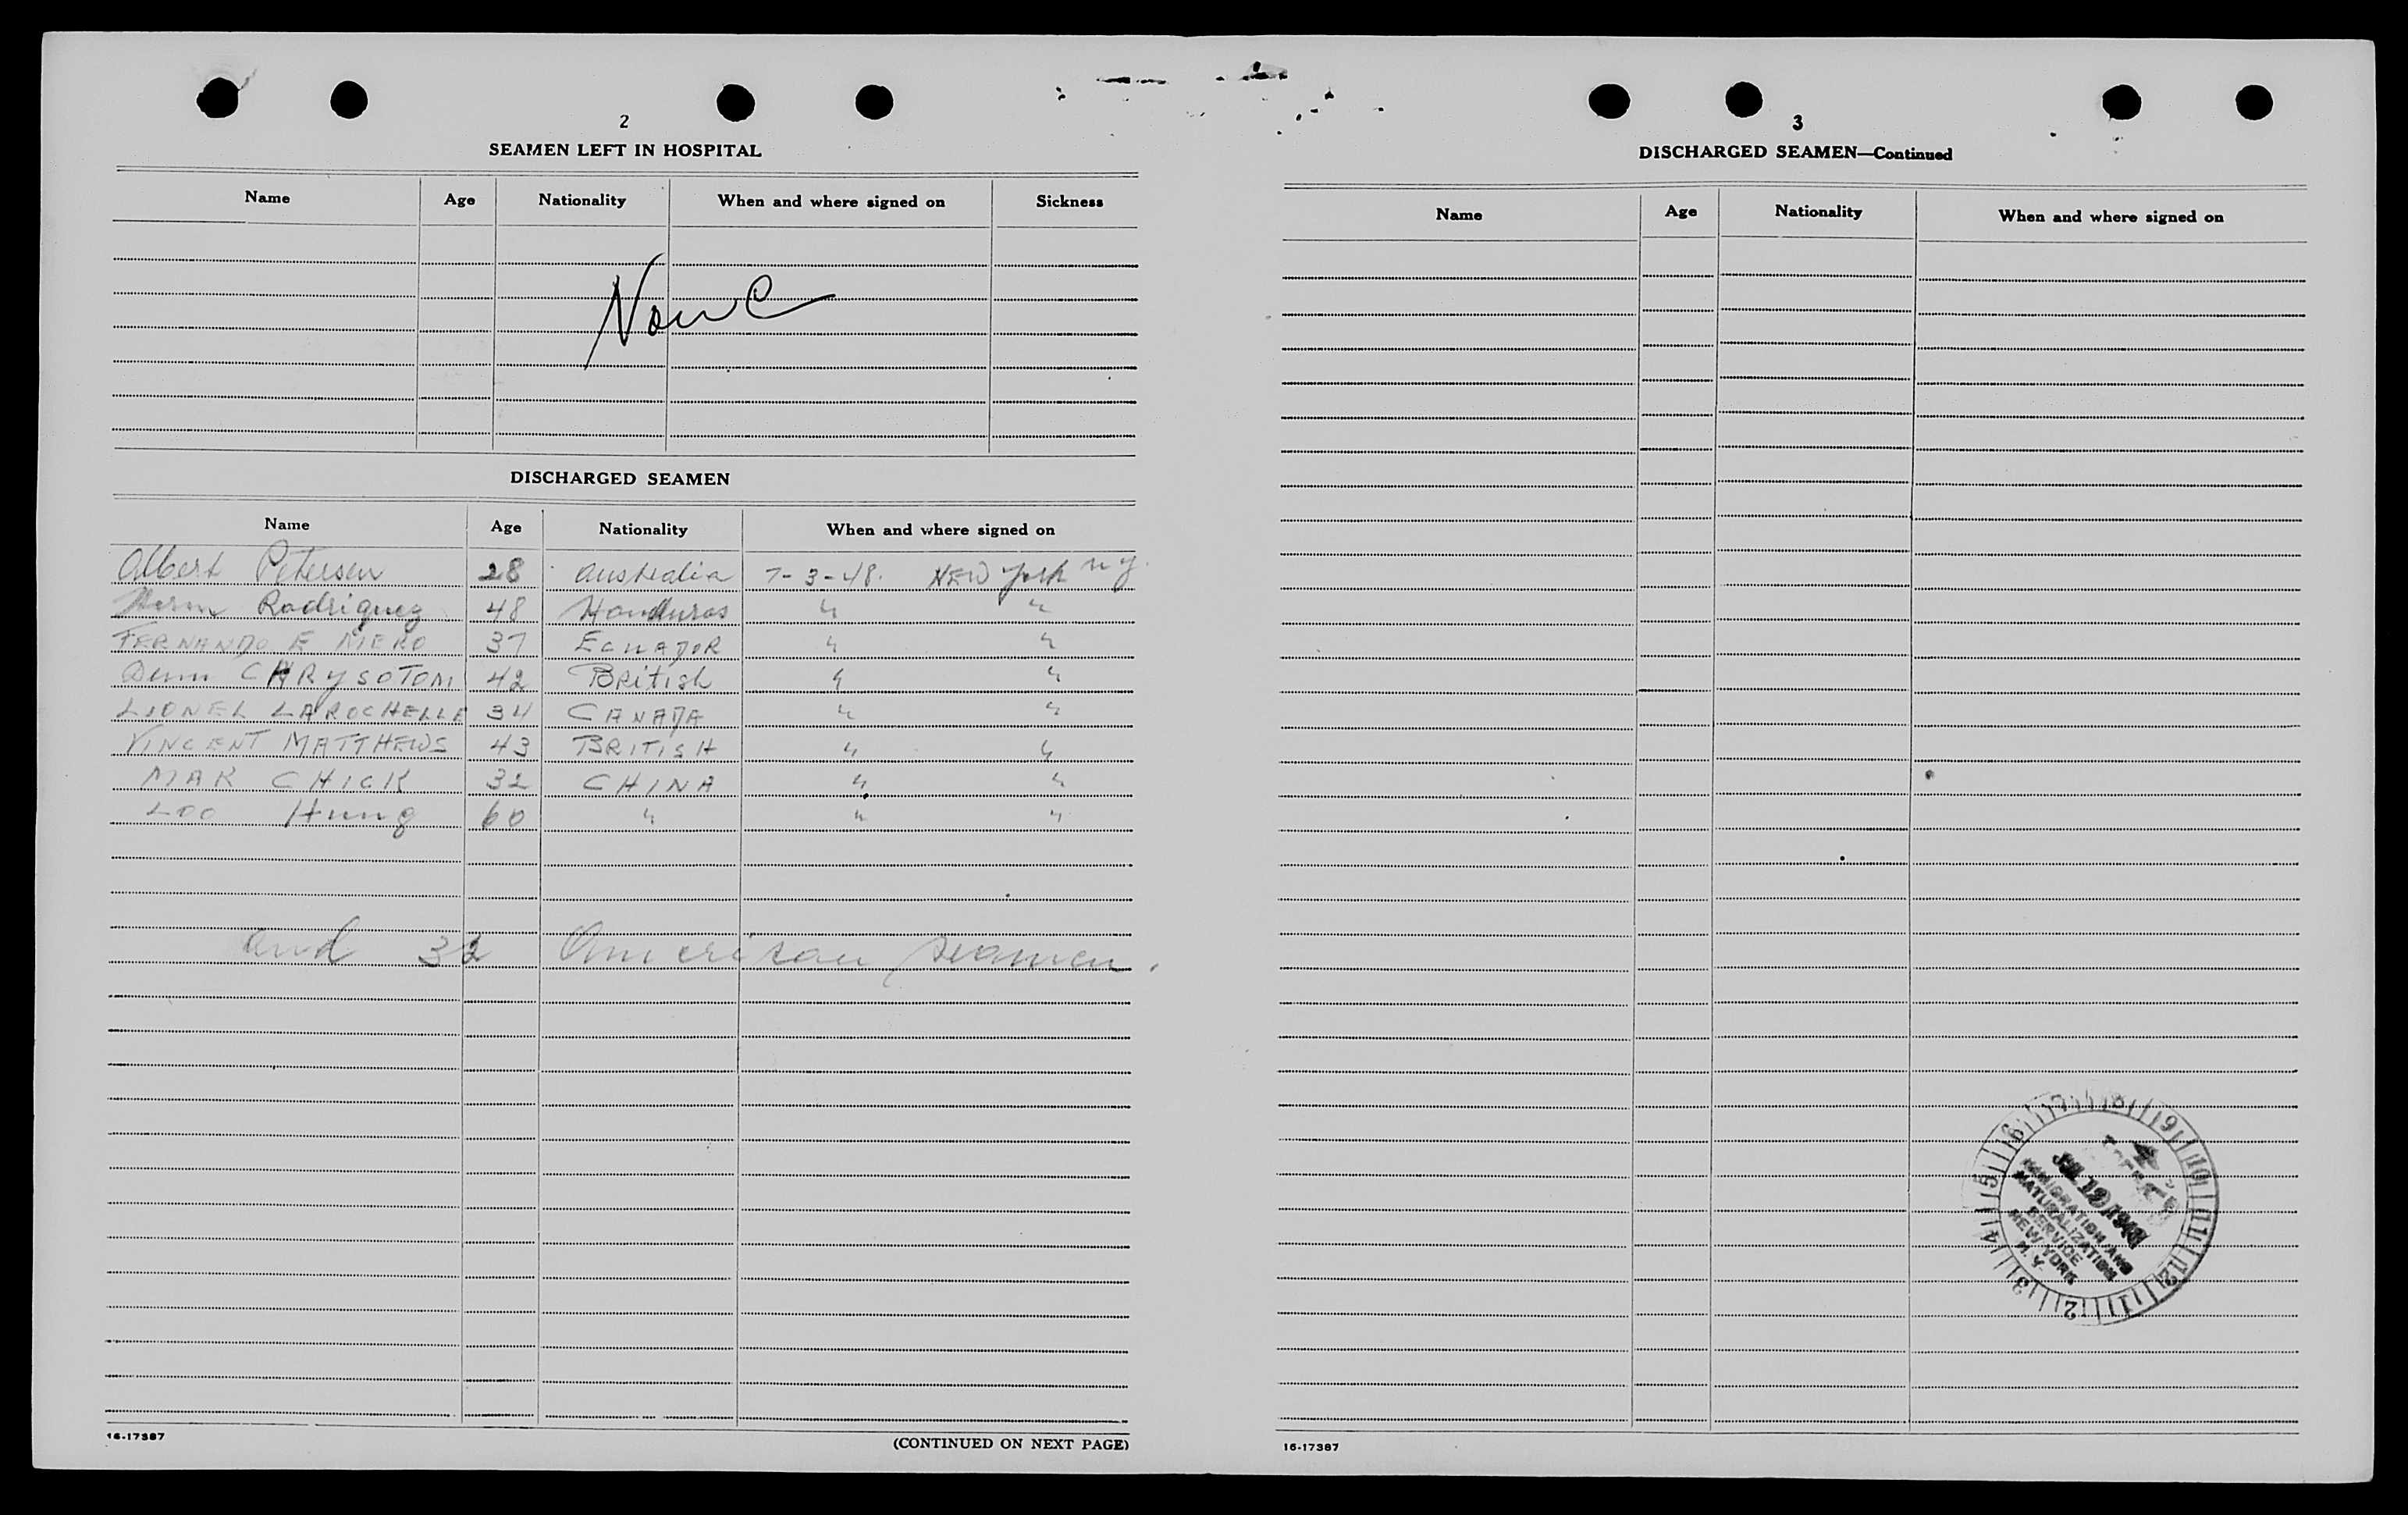 2
SEAMEN LEFT IN HOSPITAL
Name Age Nationality When and where signed on Sickness
None
DISCHARGED SEAMEN
Name Age Nationality When and where signed on
Albert Petersen 28 Australia 7-3-48. NEW York N Y.
Rodriguez 48 Honduras " "
FERNANDO E MERO 37 ECUADOR " "
CHRYSOTOM 42 BRitish " "
LIONEL LAROCHELLE 34 CANADA " "
VINCENT MATTHEWS 43 BRITISH " "
MAR CHICK 32 CHINA " "
LOO Hung 60 " " "
and 32 American seamen.
16-17387
(CONTINUED ON NEXT PAGE)
3
DISCHARGED SEAMEN—Continued
Name Age Nationality When and where signed on
5 6 7 8 9 10 11 12 1 2 3 4
JUL 1948
IMMIGRATION AND
NATURALIZATION
SERVICE
NEW YORK
N. Y.
16-17387